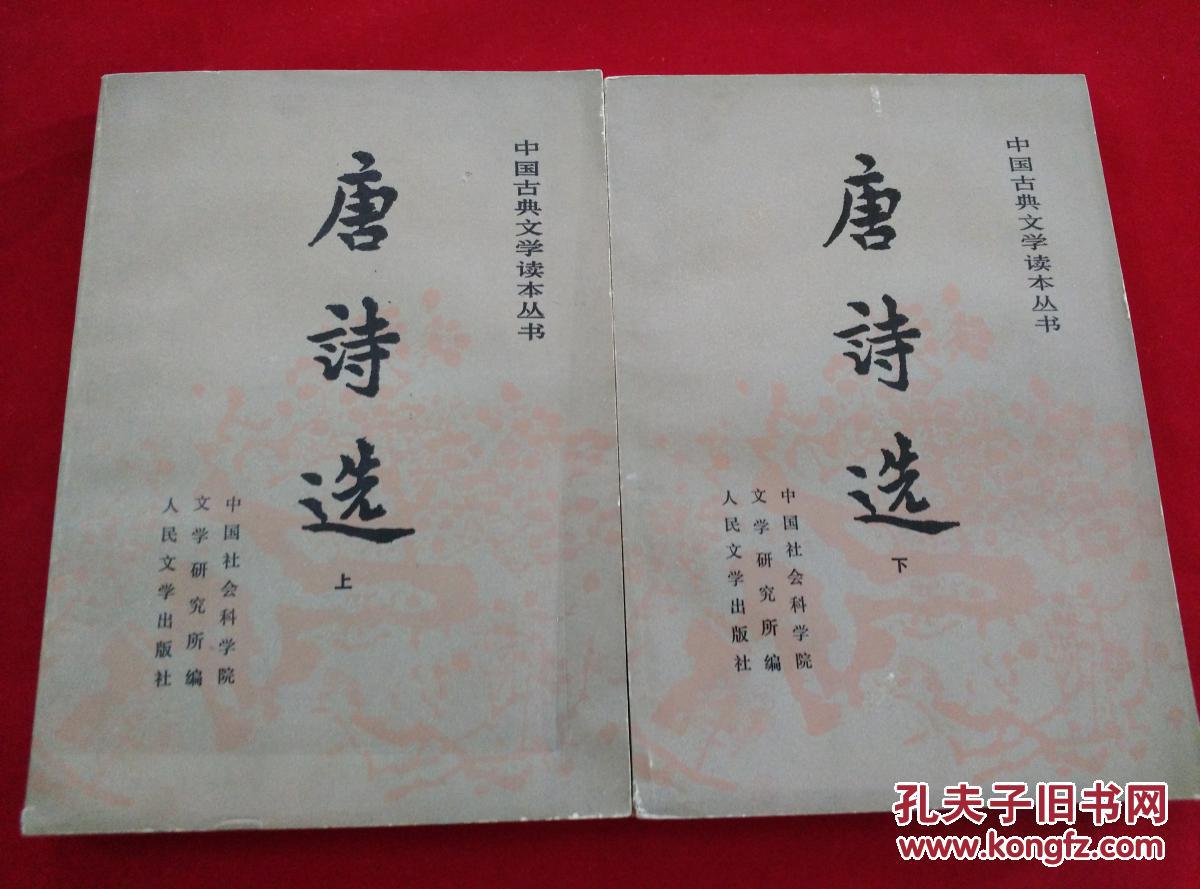 中国古典文学读本丛书
唐詩选
上
中国社会科学院
文学研究所编
人民文学出版社
中国古典文学读本丛书
唐詩选
下
中国社会科学院
文学研究所编
人民文学出版社
孔夫子旧书网
www.kongfz.com